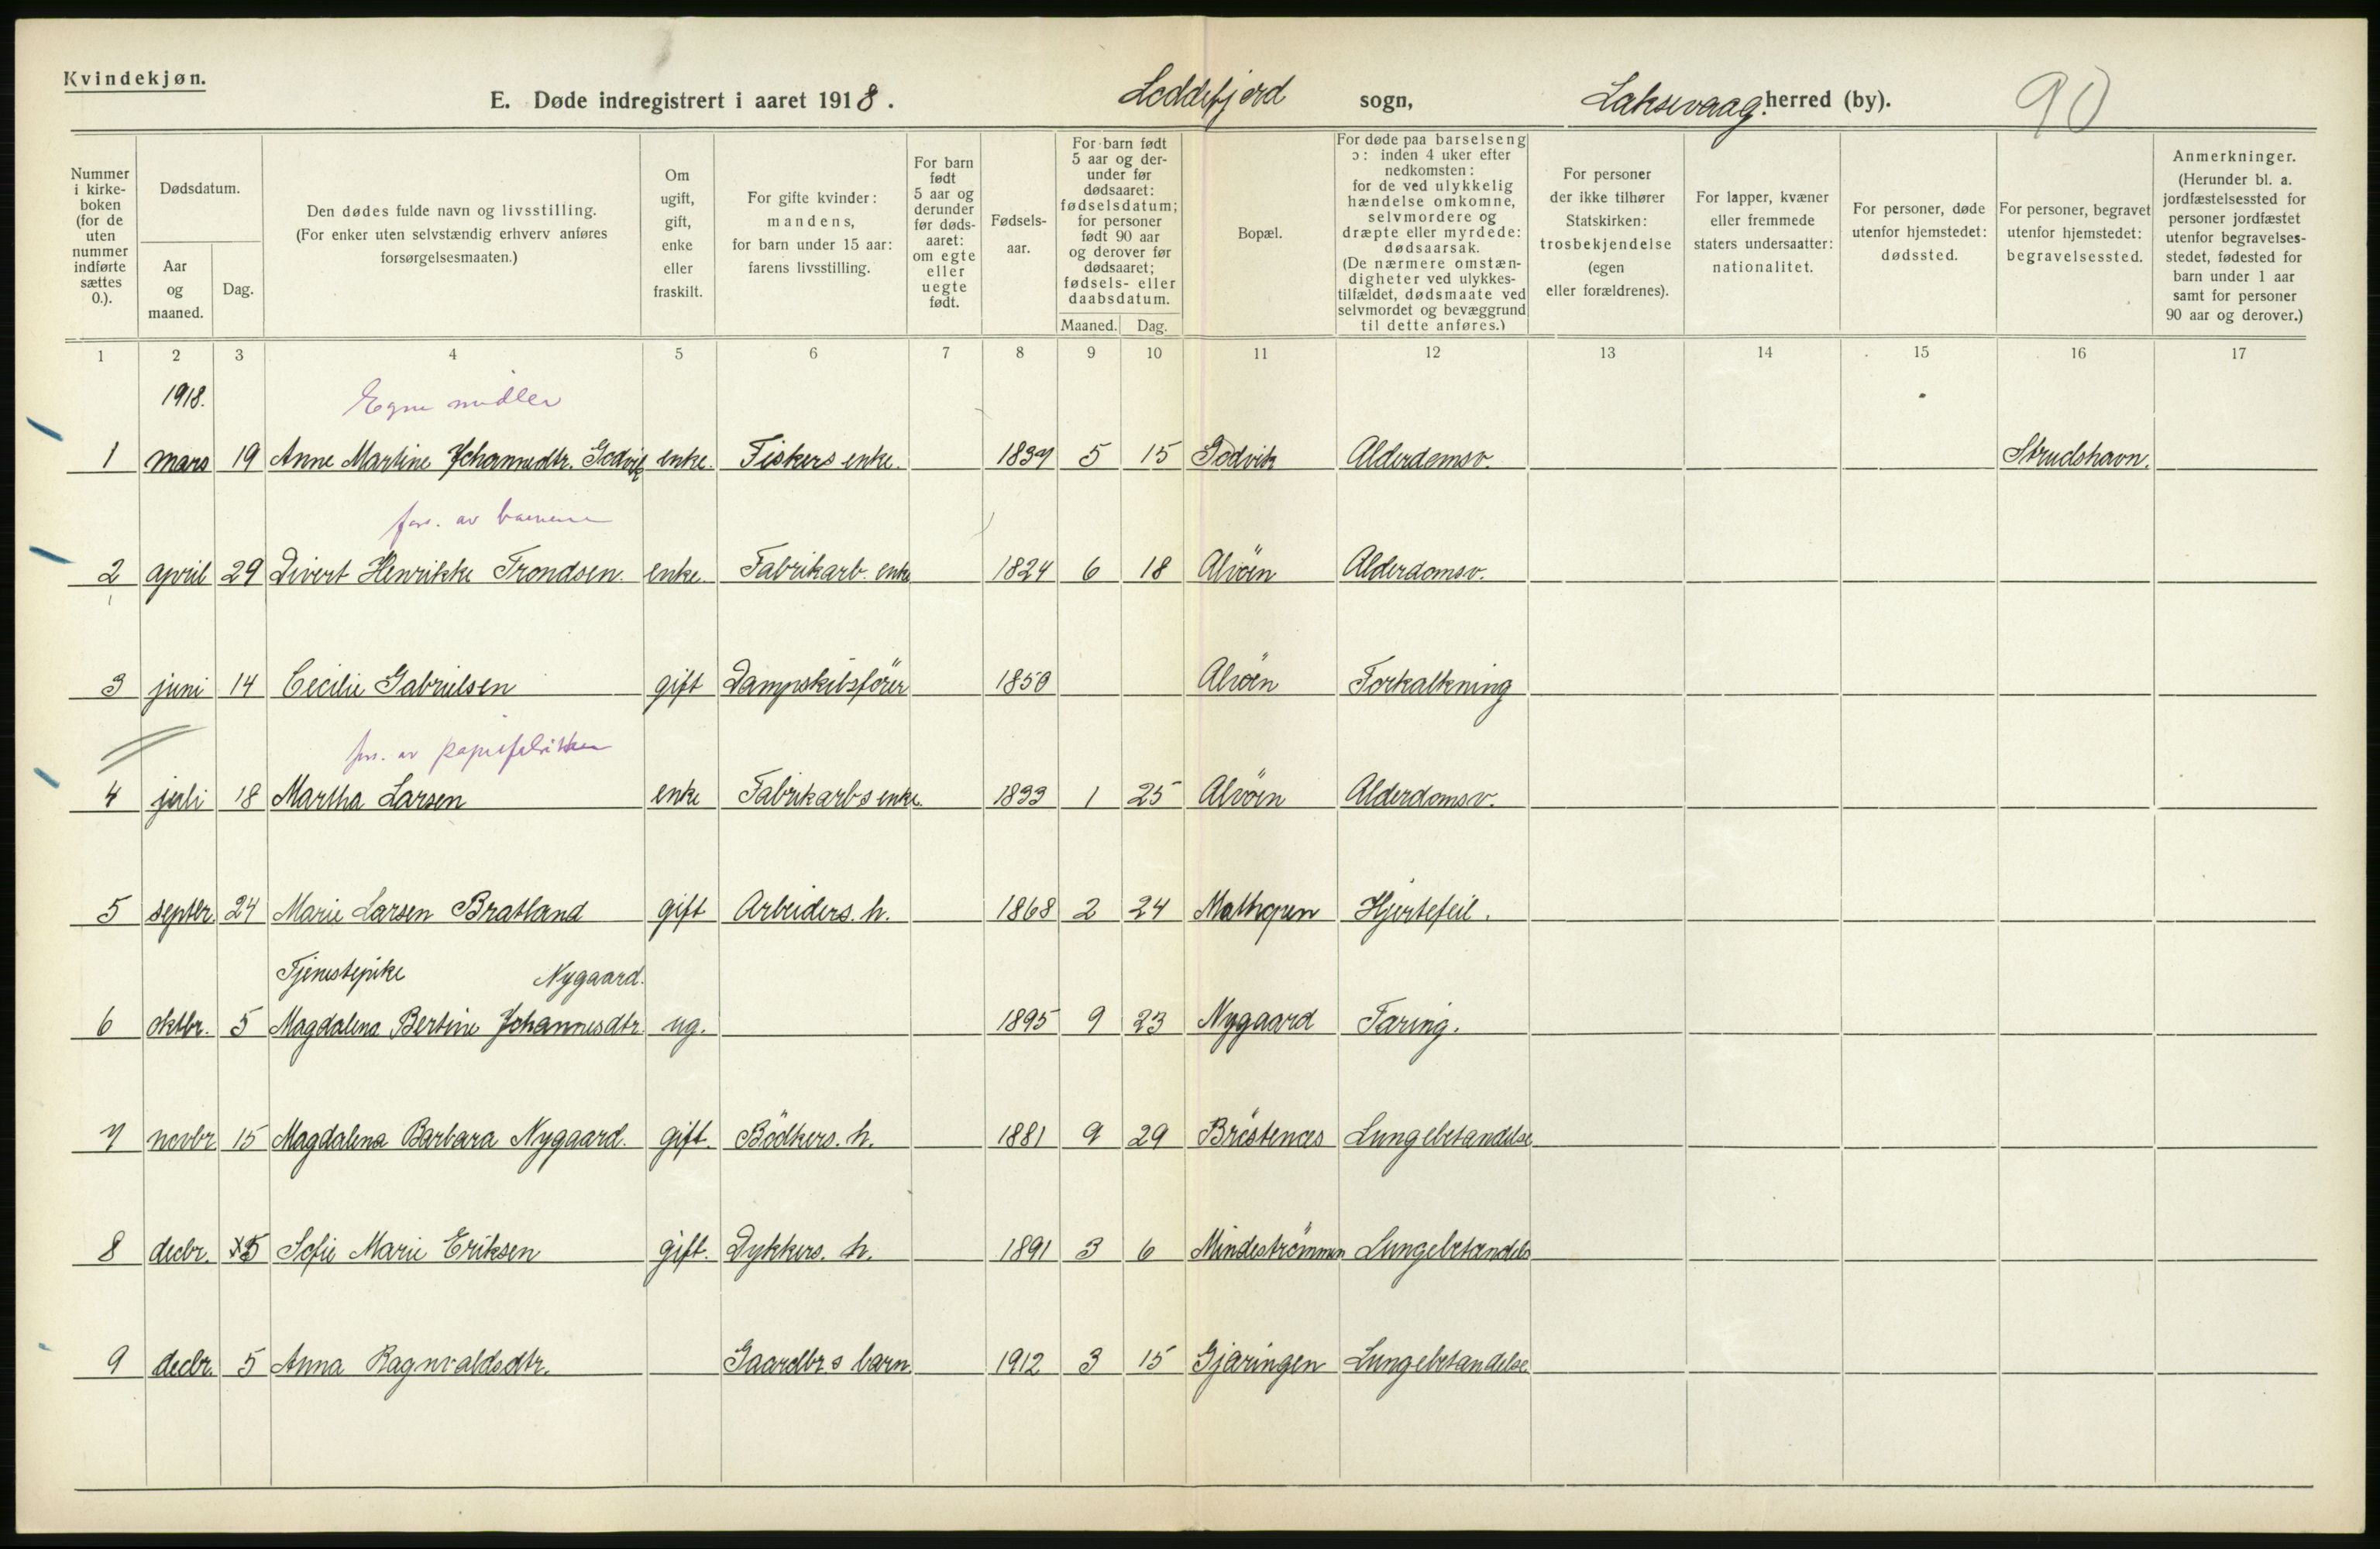 Kvindekjøn.
E. Døde indregistrert i aaret 1918. Loddefjord sogn, Laksevaag. herred (by). 90
Nummer i kirkeboken (for de uten nummer indførte sættes 0.).
Dødsdatum.
Aar og maaned.
Dag.
Den dødes fulde navn og livsstilling.
(For enker uten selvstændig erhverv anføres
forsørgelsesmaaten.)
Om ugift, gift, enke eller fraskilt.
For gifte kvinder: mandens, for barn under 15 aar: farens livsstilling.
For barn født 5 aar og derunder før dødsaaret: om egte eller uegte født.
Fødselsaar.
For barn født 5 aar og derunder før dødsaaret: fødselsdatum; for personer født 90 aar og derover før dødsaaret; fødsels- eller daabsdatum.
Maaned. Dag.
Bopæl.
For døde paa barselseng ɔ: inden 4 uker efter nedkomsten: for de ved ulykkelig hændelse omkomne, selvmordere og dræpte eller myrdede: dødsaarsak. (De nærmere omstændigheter ved ulykkestilfældet, dødsmaate ved selvmordet og bevæggrund til dette anføres.)
For personer der ikke tilhører Statskirken: trosbekjendelse (egen eller forældrenes).
For lapper, kvæner eller fremmede staters undersaatter: nationalitet.
For personer, døde utenfor hjemstedet: dødssted.
For personer, begravet utenfor hjemstedet: begravelsessted.
Anmerkninger. (Herunder bl. a. jordfæstelsessted for personer jordfæstet utenfor begravelsesstedet, fødested for barn under 1 aar samt for personer 90 aar og derover.)
1 2 3 4 5 6 7 8 9 10 11 12 13 14 15 16 17
1918. Egne midler
1 mars 19 Anne Martine Johannedtr. Godvik enke. Fiskers enke. 1837 5 15 Godvik Alderdomsv. Strudshavn.
fors. av barnene
2 april 29 Divert Henrikke Trondsen. enke. Fabrikarb. enke 1824 6 18 Alvöen Alderdomsv.
3 juni 14 Cecilie Gabrielsen gift Dampskibsförer 1850 Alvöen Forkalkning
fors. av papirfabrikken
4 juli 18 Martha Larsen enke Fabrikarbs enke. 1833 1 25 Alvöen Alderdomsv.
5 septbr. 24 Marie Larsen Bratland gift Arbeiders. h. 1868 2 24 Mathopen Hjertefeil.
Tjenestepike Nygaard.
6 oktbr. 5 Magdalena Bertine Johannesdtr ug. 1895 9 23 Nygaard Tæring.
7 novbr 15 Magdalena Barbara Nygaard. gift. Bödkers. h. 1881 9 29 Bröstenæs Lungebetændelse
8 decbr. 5 Sofie Marie Eriksen gift. Dykkers. h. 1891 3 6 Mindeströmmen Lungebetændels
9 decbr. 5 Anna Ragnvaldsdtr. Gaardbrs barn. 1912 3 15 Gjæringen Lungebetændelse.